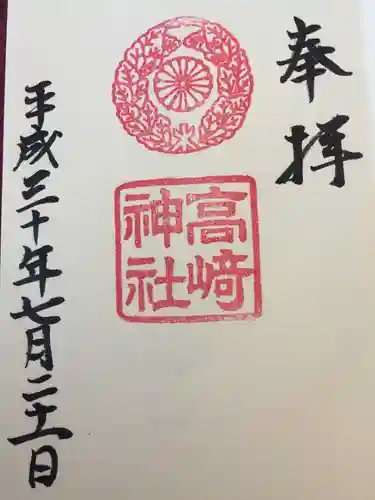 奉拝
高崎神社
平成三十年七月二十一日